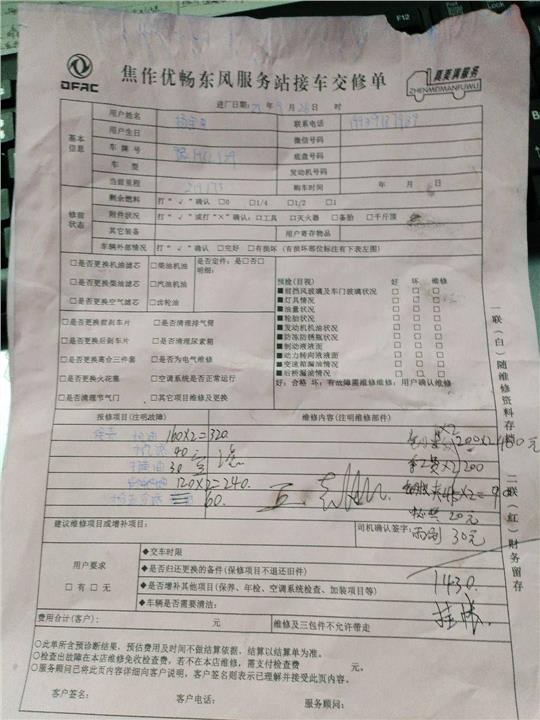 F12
DFAC
焦作优畅东风服务站接车交修单
真美满服务
ZHENMEIMANFUWU
进厂日期: 年 月 日 时
基本信息
用户姓名
联系电话
用户生日
微信号码
车牌号
底盘号码
车型
发动机号码
当前里程
购车时间 年 月 日
修前状态
剩余燃料 打“√”确认 □0 □1/4 □1/2 □1
附件状况 打“√”或打“×”确认:□工具 □灭火器 □备胎 □千斤顶
其它装备
用户寄存物品
车辆外部情况 打“√”确认 □完好 □有损坏 (有损坏部位标注有下表左图)
□是否更换机油滤芯 □柴油机油
□是否更换柴油滤芯 □汽油机油
□是否更换空气滤芯 □齿轮油
是否定件:是□否□
明细:
□是否更换前刹车片 □是否清理排气筒
□是否更换后刹车片 □是否清理尿素箱
□是否更换离合三件套 □是否为电气维修
□是否更换火花塞 □空调系统是否正常运行
□是否清理节气门 □其它项目维修及更换
预检(目视) 好 坏 维修
■前挡风玻璃及车门玻璃状况 □ □ □
■灯具情况 □ □ □
■油量状况 □ □ □
■轮胎状况 □ □ □
■发动机机油状况 □ □ □
■防冻防锈瓶状况 □ □ □
■制动液液面 □ □ □
■动力转向液液面 □ □ □
■变速箱漏油情况 □ □ □
■后桥漏油情况 □ □ □
好:合格 坏:有故障需维修维修:用户确认维修
一联(白)随维修资料存档
二联(红)财务留存
报修项目(注明故障)
维修内容(注明维修部件)
160×2=320
40
30
120×2=240.
60.
200
20元
雨刮 30元
建议维修项目或增补项目:
司机确认签字:
用户要求
□有 □无
◆交车时限
◆是否归还更换的备件(保修项目不退还旧件)
◆是否增补其他项目(保养、年检、空调系统检查、加装项目等)
◆车辆是否需要清洁:
1430.
挂帐
费用合计(客户): 元
维修及三包件不允许带走
○此单所含预诊断结果,预估费用及时间不做结算依据,结算以结算单为准。
○检查出故障在本店维修免收检查费,若不在本店维修,需支付检查费 元。
○服务顾问已将此页内容详细向客户说明,客户签名则表示已理解并接受此页内容。
客户签名: 客户电话: 服务顾问: